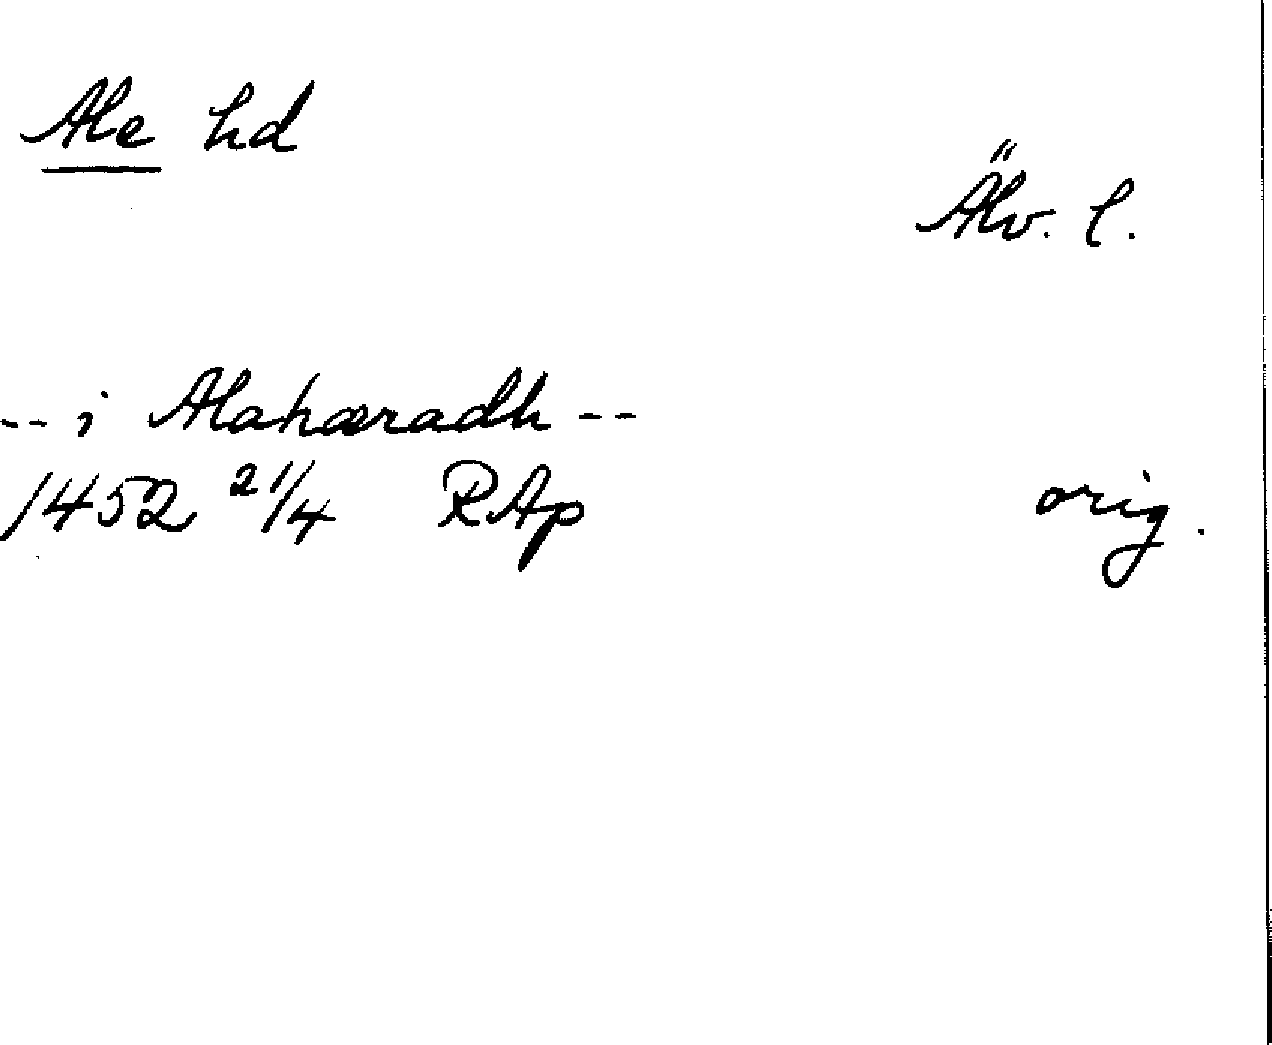 Ale hd
Älv. l.
-- i Alahæradh --
1452 21/4 RAp orig.